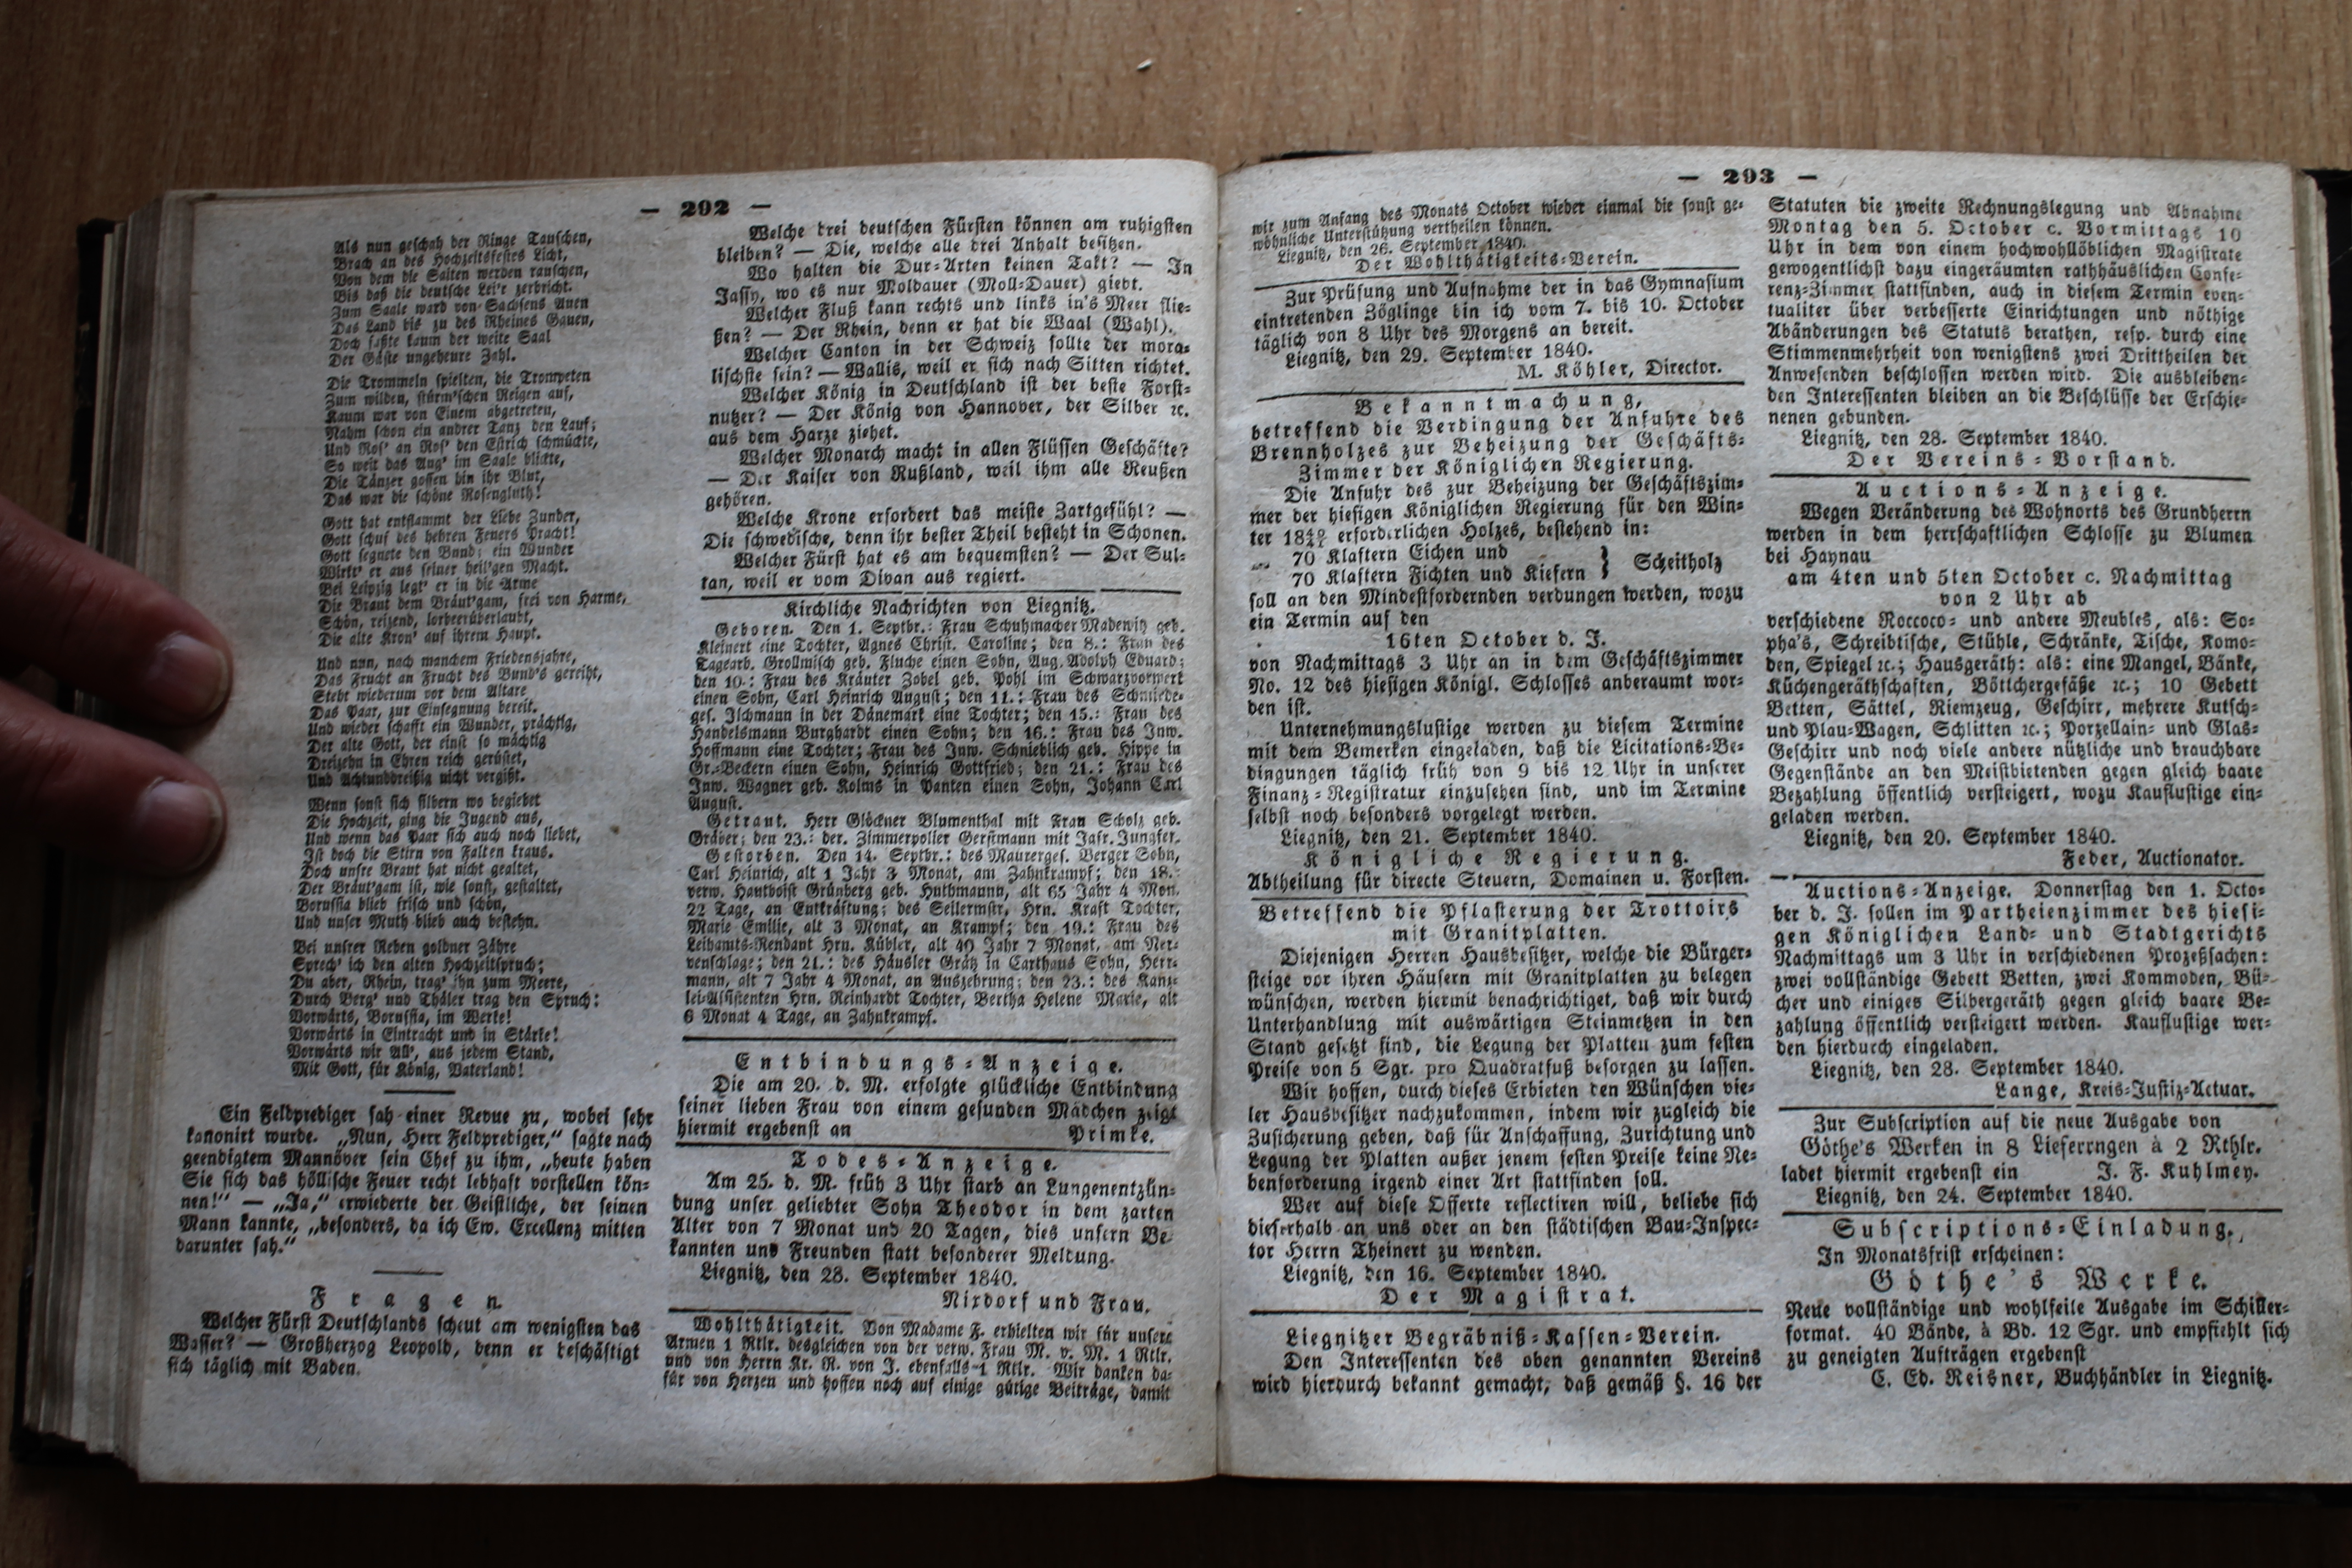 — 292 —
Als nun geschah der Ringe Tauschen,
Brach an des Hochzeitsfestes Licht,
Von dem die Saiten werden rauschen,
Bis daß die deutsche Lei'r zerbricht.
Zum Saale ward von Sachsens Auen
Das Land bis zu des Rheines Gauen,
Doch faßte kaum der weite Saal
Der Gäste ungeheure Zahl.
Die Trommeln spielten, die Trompeten
Zum wilden, stürm'schen Reigen auf,
Kaum war von Einem abgetreten,
Nahm schon ein andrer Tanz den Lauf;
Und Ros' an Ros' den Estrich schmückte,
So weit das Aug' im Saale blickte,
Die Tänzer gossen hin ihr Blut,
Das war die schöne Rosengluth!
Gott hat entflammt der Liebe Zunder,
Gott schuf des hehren Feuers Pracht!
Gott segnete den Bund; ein Wunder
Wirkt' er aus seiner heil'gen Macht.
Bei Leipzig legt' er in die Arme
Die Braut dem Bräut'gam, frei von Harme,
Schön, reizend, lorbeerüberlaubt,
Die alte Kron' auf ihrem Haupt.
Und nun, nach manchem Friedensjahre,
Das Frucht an Frucht des Bund's gereiht,
Steht wiederum vor dem Altare
Das Paar, zur Einsegnung bereit.
Und wieder schafft ein Wunder, prächtig,
Der alte Gott, der einst so mächtig
Dreizehn in Ehren reich gerüstet,
Und Achtunddreißig nicht vergißt.
Wenn sonst sich silbern wo begiebet
Die Hochzeit, ging die Jugend aus,
Und wenn das Paar sich auch noch liebet,
Ist doch die Stirn von Falten kraus.
Doch unsre Braut hat nicht gealtet,
Der Bräut'gam ist, wie sonst, gestaltet,
Borussia blieb frisch und schön,
Und unser Muth blieb auch bestehn.
Bei unsrer Reben goldner Zähre
Sprech' ich den alten Hochzeitspruch;
Du aber, Rhein, trag' ihn zum Meere,
Durch Berg' und Thäler trag den Spruch:
Vorwärts, Borussia, im Werke!
Vorwärts in Eintracht und in Stärke!
Vorwärts wir All', aus jedem Stand,
Mit Gott, für König, Vaterland!
Ein Feldprediger sah einer Revue zu, wobei sehr
kanonirt wurde. „Nun, Herr Feldprediger,“ sagte nach
geendigtem Mannöver sein Chef zu ihm, „heute haben
Sie sich das höllische Feuer recht lebhaft vorstellen kön-
nen!“ — „Ja,“ erwiederte der Geistliche, der seinen
Mann kannte, „besonders, da ich Ew. Excellenz mitten
darunter sah.“
Fragen.
Welcher Fürst Deutschlands scheut am wenigsten das
Wasser? — Großherzog Leopold, denn er beschäftigt
sich täglich mit Baden.
Welche drei deutschen Fürsten können am ruhigsten
bleiben? — Die, welche alle drei Anhalt besitzen.
Wo halten die Dur-Arten keinen Takt? — In
Jassy, wo es nur Moldauer (Moll-Dauer) giebt.
Welcher Fluß kann rechts und links in's Meer flie-
ßen? — Der Rhein, denn er hat die Waal (Wahl).
Welcher Canton in der Schweiz sollte der mora-
lischste sein? — Wallis, weil er sich nach Sitten richtet.
Welcher König in Deutschland ist der beste Forst-
nutzer? — Der König von Hannover, der Silber ꝛc.
aus dem Harze ziehet.
Welcher Monarch macht in allen Flüssen Geschäfte?
— Der Kaiser von Rußland, weil ihm alle Reußen
gehören.
Welche Krone erfordert das meiste Zartgefühl? —
Die schwedische, denn ihr bester Theil besteht in Schonen.
Welcher Fürst hat es am bequemsten? — Der Sul-
tan, weil er vom Divan aus regiert.
Kirchliche Nachrichten von Liegnitz.
Geboren. Den 1. Septbr.: Frau Schuhmacher Madewitz geb.
Kleinert eine Tochter, Agnes Christ. Caroline; den 8.: Frau des
Tagearb. Grollmisch geb. Fluche einen Sohn, Aug. Adolph Eduard;
den 10.: Frau des Kräuter Zobel geb. Pohl im Schwarzvorwerk
einen Sohn, Carl Heinrich August; den 11.: Frau des Schmiede-
ges. Ilchmann in der Dänemark eine Tochter; den 15.: Frau des
Handelsmann Burghardt einen Sohn; den 16.: Frau des Inw.
Hoffmann eine Tochter; Frau des Inw. Schnieblich geb. Hippe in
Gr.-Beckern einen Sohn, Heinrich Gottfried; den 21.: Frau des
Inw. Wagner geb. Kolms in Panten einen Sohn, Johann Carl
August.
Getraut. Herr Glöckner Blumenthal mit Frau Scholz geb.
Gräber; den 23.: der Zimmerpolier Gerstmann mit Jgfr. Jungfer.
Gestorben. Den 14. Septbr.: des Maurerges. Berger Sohn,
Carl Heinrich, alt 1 Jahr 3 Monat, am Zahnkrampf; den 18.:
verw. Hautboist Grünberg geb. Huthmann, alt 65 Jahr 4 Mon.
22 Tage, an Entkräftung; des Seilermstr. Hrn. Kraft Tochter,
Marie Emilie, alt 3 Monat, an Krampf; den 19.: Frau des
Leihamts-Rendant Hrn. Kübler, alt 49 Jahr 7 Monat, am Ner-
venschlage; den 21.: des Häusler Grätz in Carthaus Sohn, Herr-
mann, alt 7 Jahr 4 Monat, an Auszehrung; den 23.: des Kanz-
lei-Assistenten Hrn. Reinhardt Tochter, Bertha Helene Marie, alt
6 Monat 4 Tage, an Zahnkrampf.
Entbindungs-Anzeige.
Die am 20. d. M. erfolgte glückliche Entbindung
seiner lieben Frau von einem gesunden Mädchen zeigt
hiermit ergebenst an Primke.
Todes-Anzeige.
Am 25. d. M. früh 3 Uhr starb an Lungenentzün-
dung unser geliebter Sohn Theodor in dem zarten
Alter von 7 Monat und 20 Tagen, dies unsern Be-
kannten und Freunden statt besonderer Meldung.
Liegnitz, den 28. September 1840.
Nixdorf und Frau.
Wohlthätigkeit. Von Madame F. erhielten wir für unsere
Armen 1 Rtlr. desgleichen von der verw. Frau M. v. M. 1 Rtlr.
und von Herrn Kr. R. von J. ebenfalls 1 Rtlr. Wir danken da-
für von Herzen und hoffen noch auf einige gütige Beiträge, damit
— 293 —
wir zum Anfang des Monats October wieder einmal die sonst ge-
wöhnliche Unterstützung vertheilen können.
Liegnitz, den 26. September 1840.
Der Wohlthätigkeits-Verein.
Zur Prüfung und Aufnahme der in das Gymnasium
eintretenden Zöglinge bin ich vom 7. bis 10. October
täglich von 8 Uhr des Morgens an bereit.
Liegnitz, den 29. September 1840.
M. Köhler, Director.
Bekanntmachung,
betreffend die Verdingung der Anfuhre des
Brennholzes zur Beheizung der Geschäfts-
Zimmer der Königlichen Regierung.
Die Anfuhr des zur Beheizung der Geschäftszim-
mer der hiesigen Königlichen Regierung für den Win-
ter 18 40/41 erforderlichen Holzes, bestehend in:
70 Klaftern Eichen und
70 Klaftern Fichten und Kiefern } Scheitholz
soll an den Mindestfordernden verdungen werden, wozu
ein Termin auf den
16ten October d. J.
von Nachmittags 3 Uhr an in dem Geschäftszimmer
No. 12 des hiesigen Königl. Schlosses anberaumt wor-
den ist.
Unternehmungslustige werden zu diesem Termine
mit dem Bemerken eingeladen, daß die Licitations-Be-
dingungen täglich früh von 9 bis 12 Uhr in unserer
Finanz-Registratur einzusehen sind, und im Termine
selbst noch besonders vorgelegt werden.
Liegnitz, den 21. September 1840.
Königliche Regierung.
Abtheilung für directe Steuern, Domainen u. Forsten.
Betreffend die Pflasterung der Trottoirs
mit Granitplatten.
Diejenigen Herren Hausbesitzer, welche die Bürger-
steige vor ihren Häusern mit Granitplatten zu belegen
wünschen, werden hiermit benachrichtiget, daß wir durch
Unterhandlung mit auswärtigen Steinmetzen in den
Stand gesetzt sind, die Legung der Platten zum festen
Preise von 5 Sgr. pro Quadratfuß besorgen zu lassen.
Wir hoffen, durch dieses Erbieten den Wünschen vie-
ler Hausbesitzer nachzukommen, indem wir zugleich die
Zusicherung geben, daß für Anschaffung, Zurichtung und
Legung der Platten außer jenem festen Preise keine Ne-
benforderung irgend einer Art stattfinden soll.
Wer auf diese Offerte reflectiren will, beliebe sich
dieserhalb an uns oder an den städtischen Bau-Inspec-
tor Herrn Theinert zu wenden.
Liegnitz, den 16. September 1840.
Der Magistrat.
Liegnitzer Begräbniß-Kassen-Verein.
Den Interessenten des oben genannten Vereins
wird hierdurch bekannt gemacht, daß gemäß §. 16 der
Statuten die zweite Rechnungslegung und Abnahme
Montag den 5. October c. Vormittags 10
Uhr in dem von einem hochwohllöblichen Magistrate
gewogentlichst dazu eingeräumten rathhäuslichen Confe-
renz-Zimmer stattfinden, auch in diesem Termin even-
tualiter über verbesserte Einrichtungen und nöthige
Abänderungen des Statuts berathen, resp. durch eine
Stimmenmehrheit von wenigstens zwei Drittheilen der
Anwesenden beschlossen werden wird. Die ausbleiben-
den Interessenten bleiben an die Beschlüsse der Erschie-
nenen gebunden.
Liegnitz, den 28. September 1840.
Der Vereins-Vorstand.
Auctions-Anzeige.
Wegen Veränderung des Wohnorts des Grundherrn
werden in dem herrschaftlichen Schlosse zu Blumen
bei Haynau
am 4ten und 5ten October c. Nachmittag
von 2 Uhr ab
verschiedene Roccoco- und andere Meubles, als: So-
pha's, Schreibtische, Stühle, Schränke, Tische, Komo-
den, Spiegel ꝛc.; Hausgeräth: als: eine Mangel, Bänke,
Küchengeräthschaften, Böttchergefäße ꝛc.; 10 Gebett
Betten, Sättel, Riemzeug, Geschirr, mehrere Kutsch-
und Plau-Wagen, Schlitten ꝛc.; Porzellain- und Glas-
Geschirr und noch viele andere nützliche und brauchbare
Gegenstände an den Meistbietenden gegen gleich baare
Bezahlung öffentlich versteigert, wozu Kauflustige ein-
geladen werden.
Liegnitz, den 20. September 1840.
Feder, Auctionator.
Auctions-Anzeige. Donnerstag den 1. Octo-
ber d. J. sollen im Partheienzimmer des hiesi-
gen Königlichen Land- und Stadtgerichts
Nachmittags um 3 Uhr in verschiedenen Prozeßsachen:
zwei vollständige Gebett Betten, zwei Kommoden, Bü-
cher und einiges Silbergeräth gegen gleich baare Be-
zahlung öffentlich versteigert werden. Kauflustige wer-
den hierdurch eingeladen.
Liegnitz, den 28. September 1840.
Lange, Kreis-Justiz-Actuar.
Zur Subscription auf die neue Ausgabe von
Göthe's Werken in 8 Lieferrngen à 2 Rthlr.
ladet hiermit ergebenst ein J. F. Kuhlmey.
Liegnitz, den 24. September 1840.
Subscriptions-Einladung.
In Monatsfrist erscheinen:
Göthe's Werke.
Neue vollständige und wohlfeile Ausgabe im Schiller-
format. 40 Bände, à Bd. 12 Sgr. und empfiehlt sich
zu geneigten Aufträgen ergebenst
C. Ed. Reisner, Buchhändler in Liegnitz.